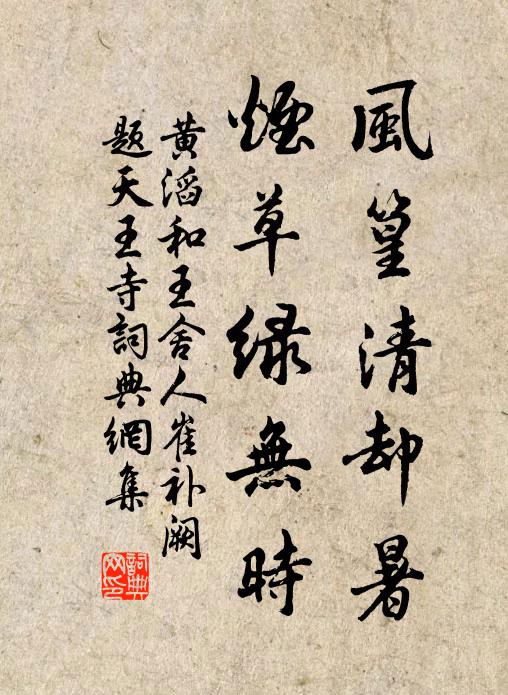 風篁清却暑
煙草綠無時
黃滔和王舍人崔補闕
題天王寺詞典網集
詞典網印